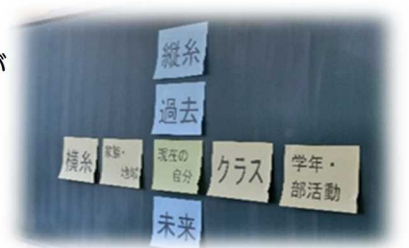 が
縦糸
過去
横糸
家族・
地域
現在の
自分
クラス
学年・
部活動
未来